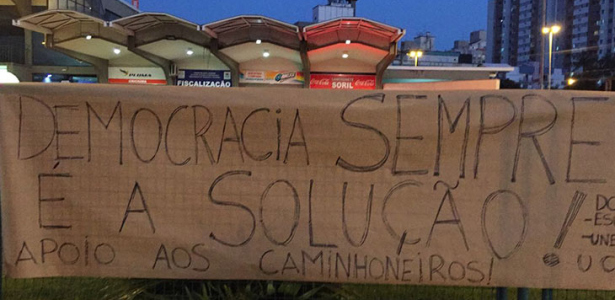 PLUMA
FISCALIZAÇÃO
Coca-Cola
SORIL
Coca-Cola
DEMOCRACIA SEMPRE
É A SOLUÇÃO!
APOIO AOS CAMINHONEIROS!
DO
-ES
-UNE
U C